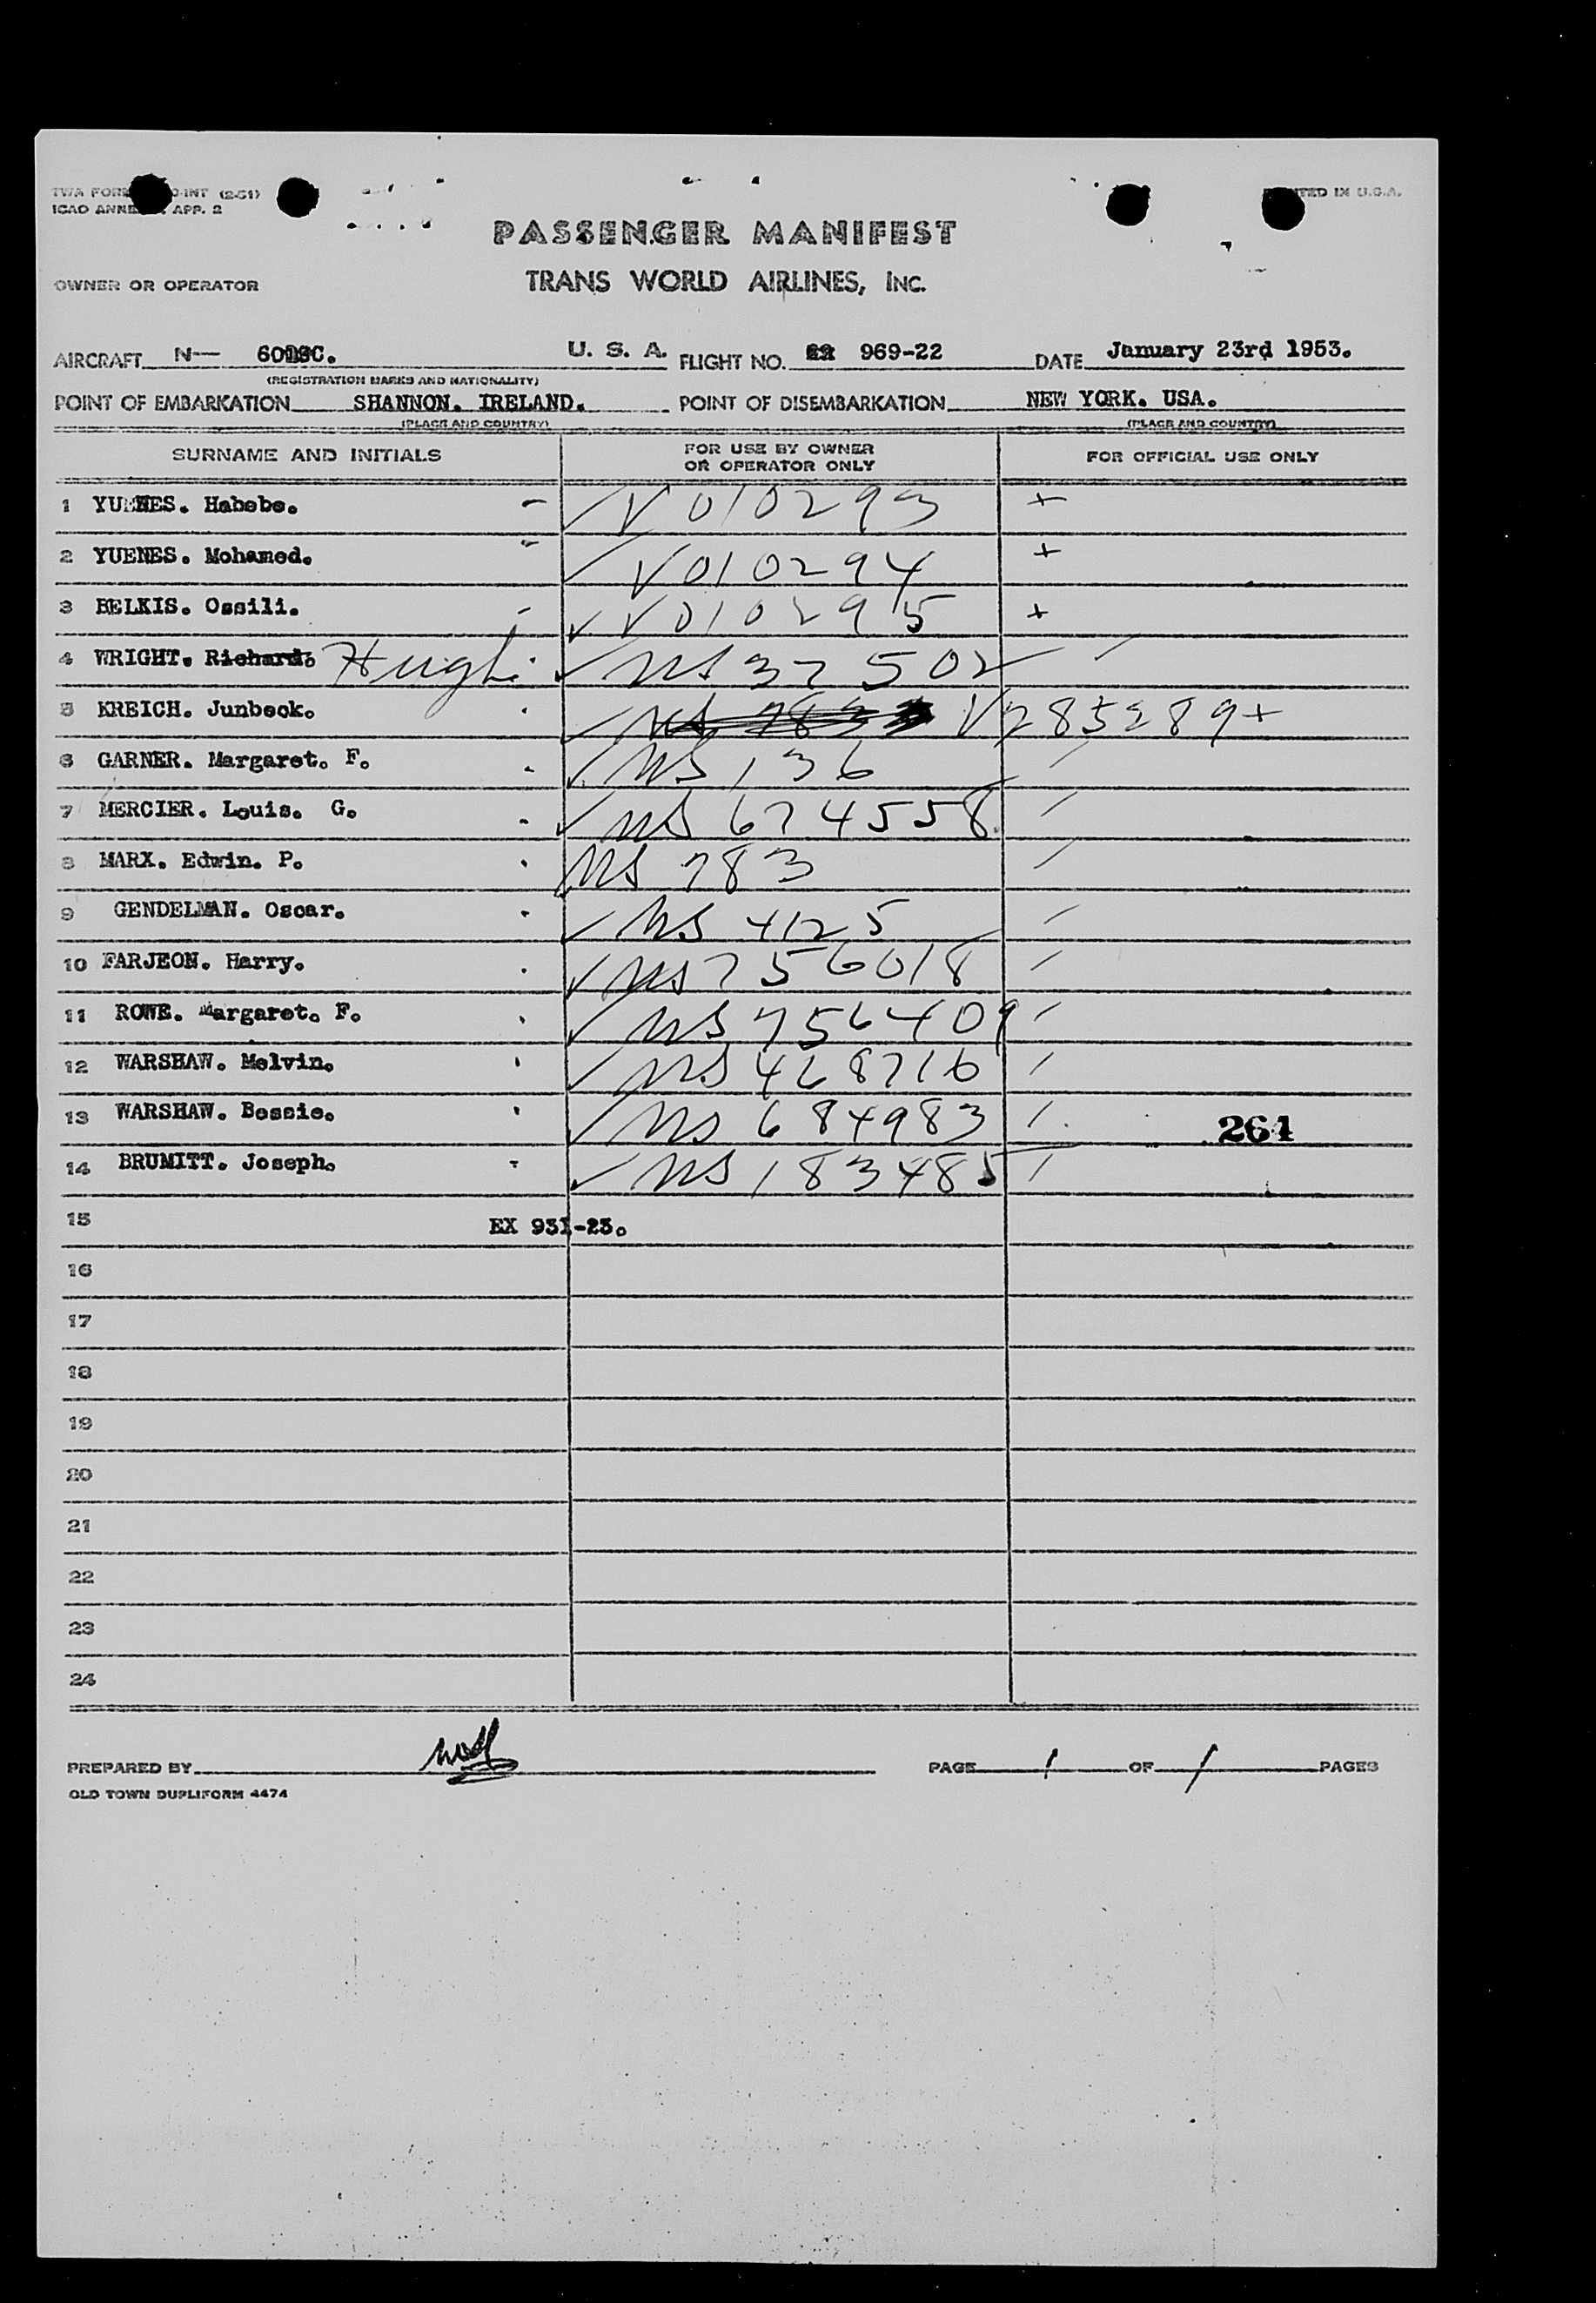 TWA FORM INT (2-51)
PRINTED IN U.S.A.
ICAO ANNEX APP. 2
PASSENGER MANIFEST
OWNER OR OPERATOR TRANS WORLD AIRLINES, INC.
AIRCRAFT N— U. S. A. FLIGHT NO. 969-22 DATE January 23rd 1953.
(REGISTRATION MARKS AND NATIONALITY)
POINT OF EMBARKATION SHANNON. IRELAND. POINT OF DISEMBARKATION NEW YORK. USA.
(PLACE AND COUNTRY) (PLACE AND COUNTRY)
SURNAME AND INITIALS FOR USE BY OWNER OR OPERATOR ONLY FOR OFFICIAL USE ONLY
1 YUENES. Habebe. - ✓ V 010293 +
2 YUENES. Mohamed. - ✓ V010294 +
3 BELKIS. Ossili. - ✓ V010295 +
4 WRIGHT. Richard. Hugh. ✓ US 37502 /
5 KREICH. Junbeck. ✓ V285289+
6 GARNER. Margaret. F. ✓ US 136 /
7 MERCIER. Louis. G. ✓ US 674558 /
8 MARX. Edwin. P. US 783 /
9 GENDELMAN. Oscar. ✓ US 4125 /
10 FARJEON. Harry. ✓ US 756018 /
11 ROWE. Margaret. F. ✓ US 756409 /
12 WARSHAW. Melvin. ✓ US 468716 /
13 WARSHAW. Bessie. ✓ US 684983 / 261
14 BRUMITT. Joseph. - ✓ US 183485 /
15 EX 931-23.
16
17
18
19
20
21
22
23
24
PREPARED BY PAGE 1 OF 1 PAGES
OLD TOWN DUPLIFORM 4474